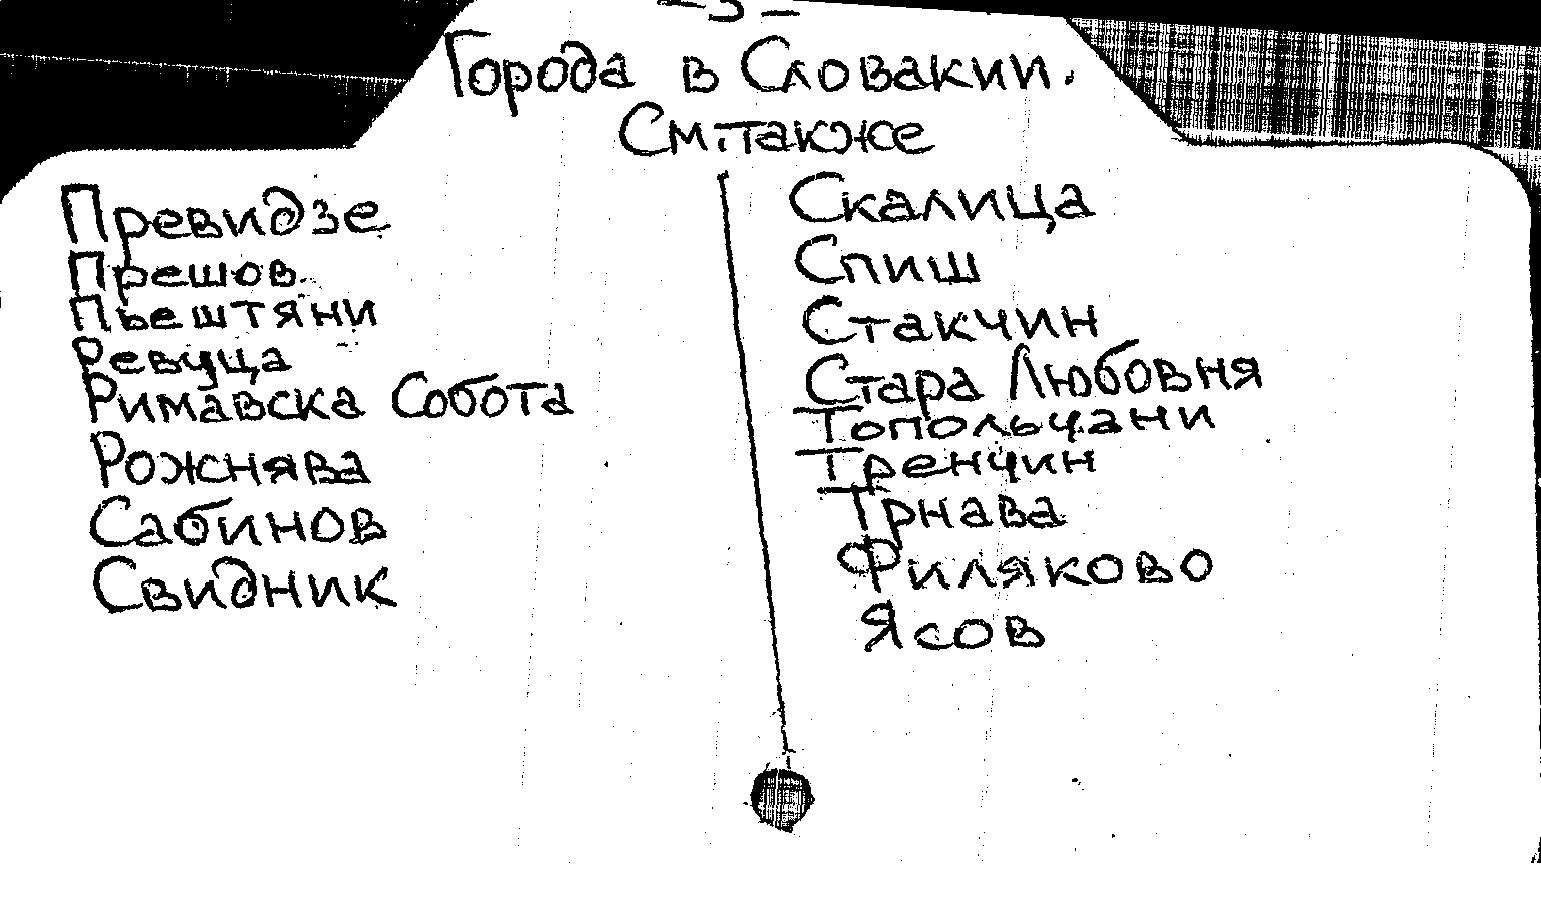 -3-
Города в Словакии.
См. также
Превидзе
Прешов
Пьештяни
Ревуца
Римавска Собота
Рожнява
Сабинов
Свидник
Скалица
Спиш
Стакчин
Стара Любовня
Топольчани
Тренчин
Трнава
Филяково
Ясов